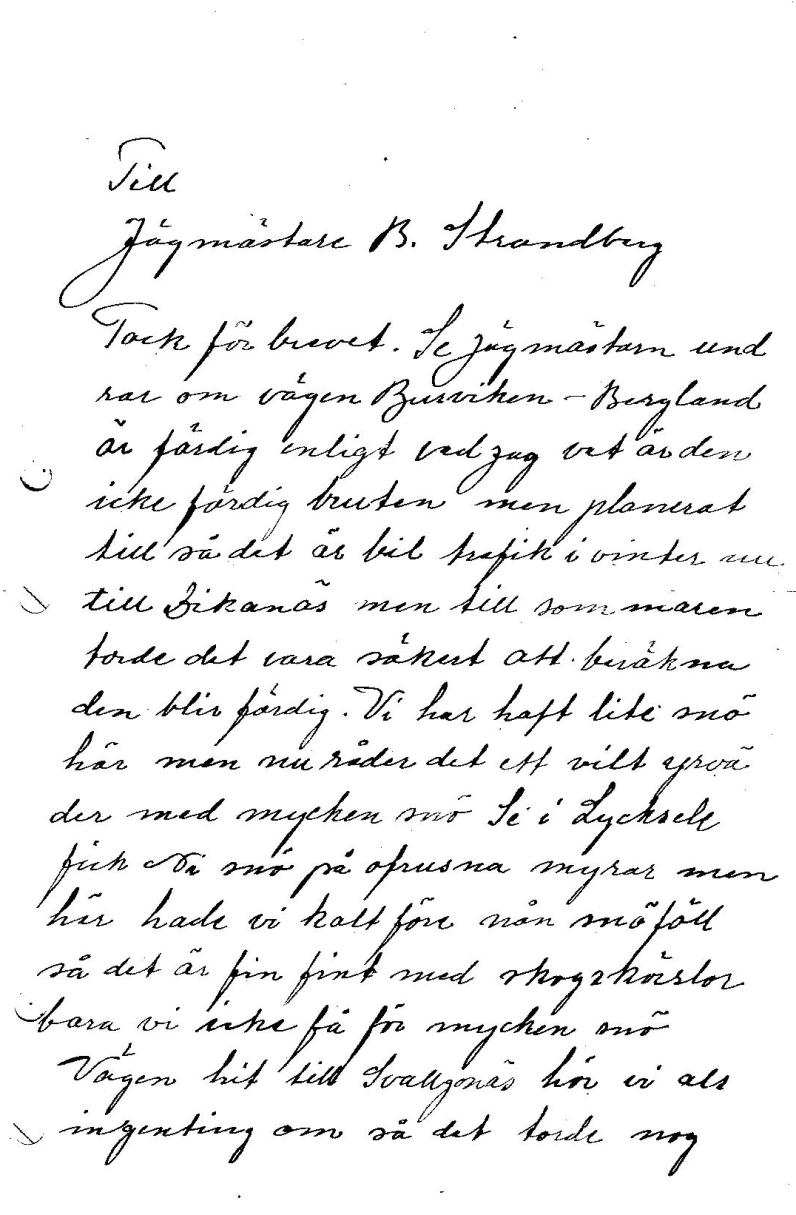 Till
Jägmästare B. Strandberg
Tack för brevet. Se Jägmästarn und
rar om vägen Burviken - Bergland
är färdig enligt vad jag vet är den
icke färdig bruten men planerat
till så det är bil trafik i vinter nu
till Dikanäs men till sommaren
torde det vara säkert att beräkna
den blir färdig. Vi har haft lite snö
här men nu råder det ett vilt yrvä
der med mycken snö Se i Lycksele
fick Ni snö på ofrusna myrar men
här hade vi kalt före nån snö föll
så det är fin fint med skogskörslor
bara vi icke få för mycken snö
Vägen hit till Svalljonäs hör vi als
ingenting om så det torde nog